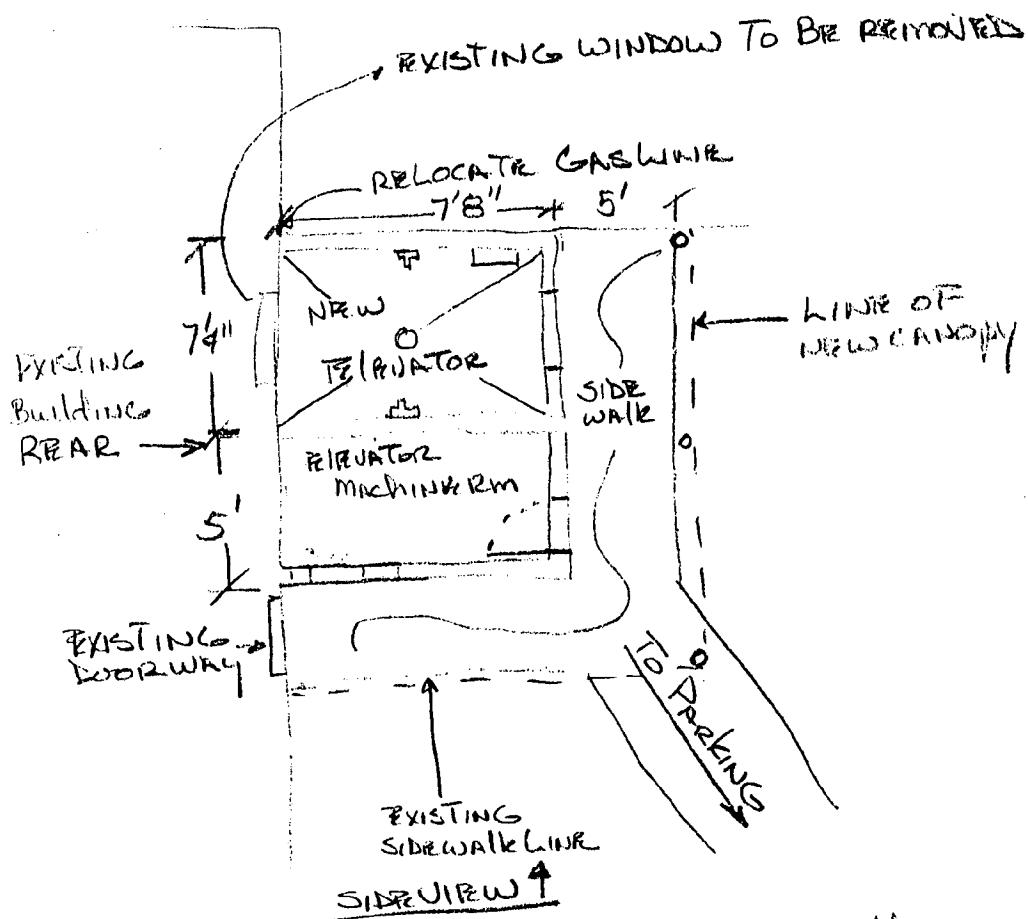 EXISTING WINDOW TO BE REMOVED
RELOCATE GASLINE
7'8"
5'
NEW
ELEVATOR
7'4"
EXISTING
BUILDING
REAR
SIDE
WALK
LINE OF
NEW CANOPY
ELEVATOR
MACHINE RM
5'
EXISTING
DOORWAY
TO PARKING
EXISTING
SIDEWALK LINE
SIDE VIEW